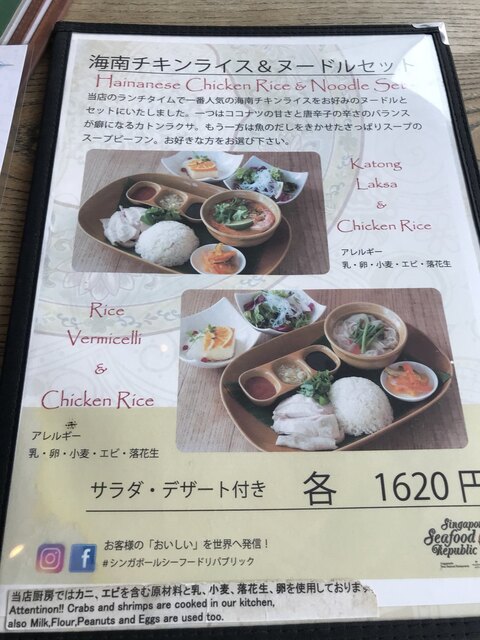 海南チキンライス＆ヌードルセット
Hainanese Chicken Rice & Noodle Set
当店のランチタイムで一番人気の海南チキンライスをお好みのヌードルと
セットにいたしました。一つはココナツの甘さと唐辛子の辛さのバランス
が癖になるカトンラクサ。もう一方は魚のだしをきかせたさっぱりスープの
スープビーフン。お好きな方をお選び下さい。
Katong
Laksa
&
Chicken Rice
アレルギー
乳・卵・小麦・エビ・落花生
Rice
Vermicelli
&
Chicken Rice
アレルギー
乳・卵・小麦・エビ・落花生
サラダ・デザート付き 各 1620円
お客様の「おいしい」を世界へ発信！
#シンガポールシーフードリパブリック
Singapore
Seafood
Republic
当店厨房ではカニ、エビを含む原材料と乳、小麦、落花生、卵を使用しております
Attentinon!! Crabs and shrimps are cooked in our kitchen,
also Milk,Flour,Peanuts and Eggs are used too.